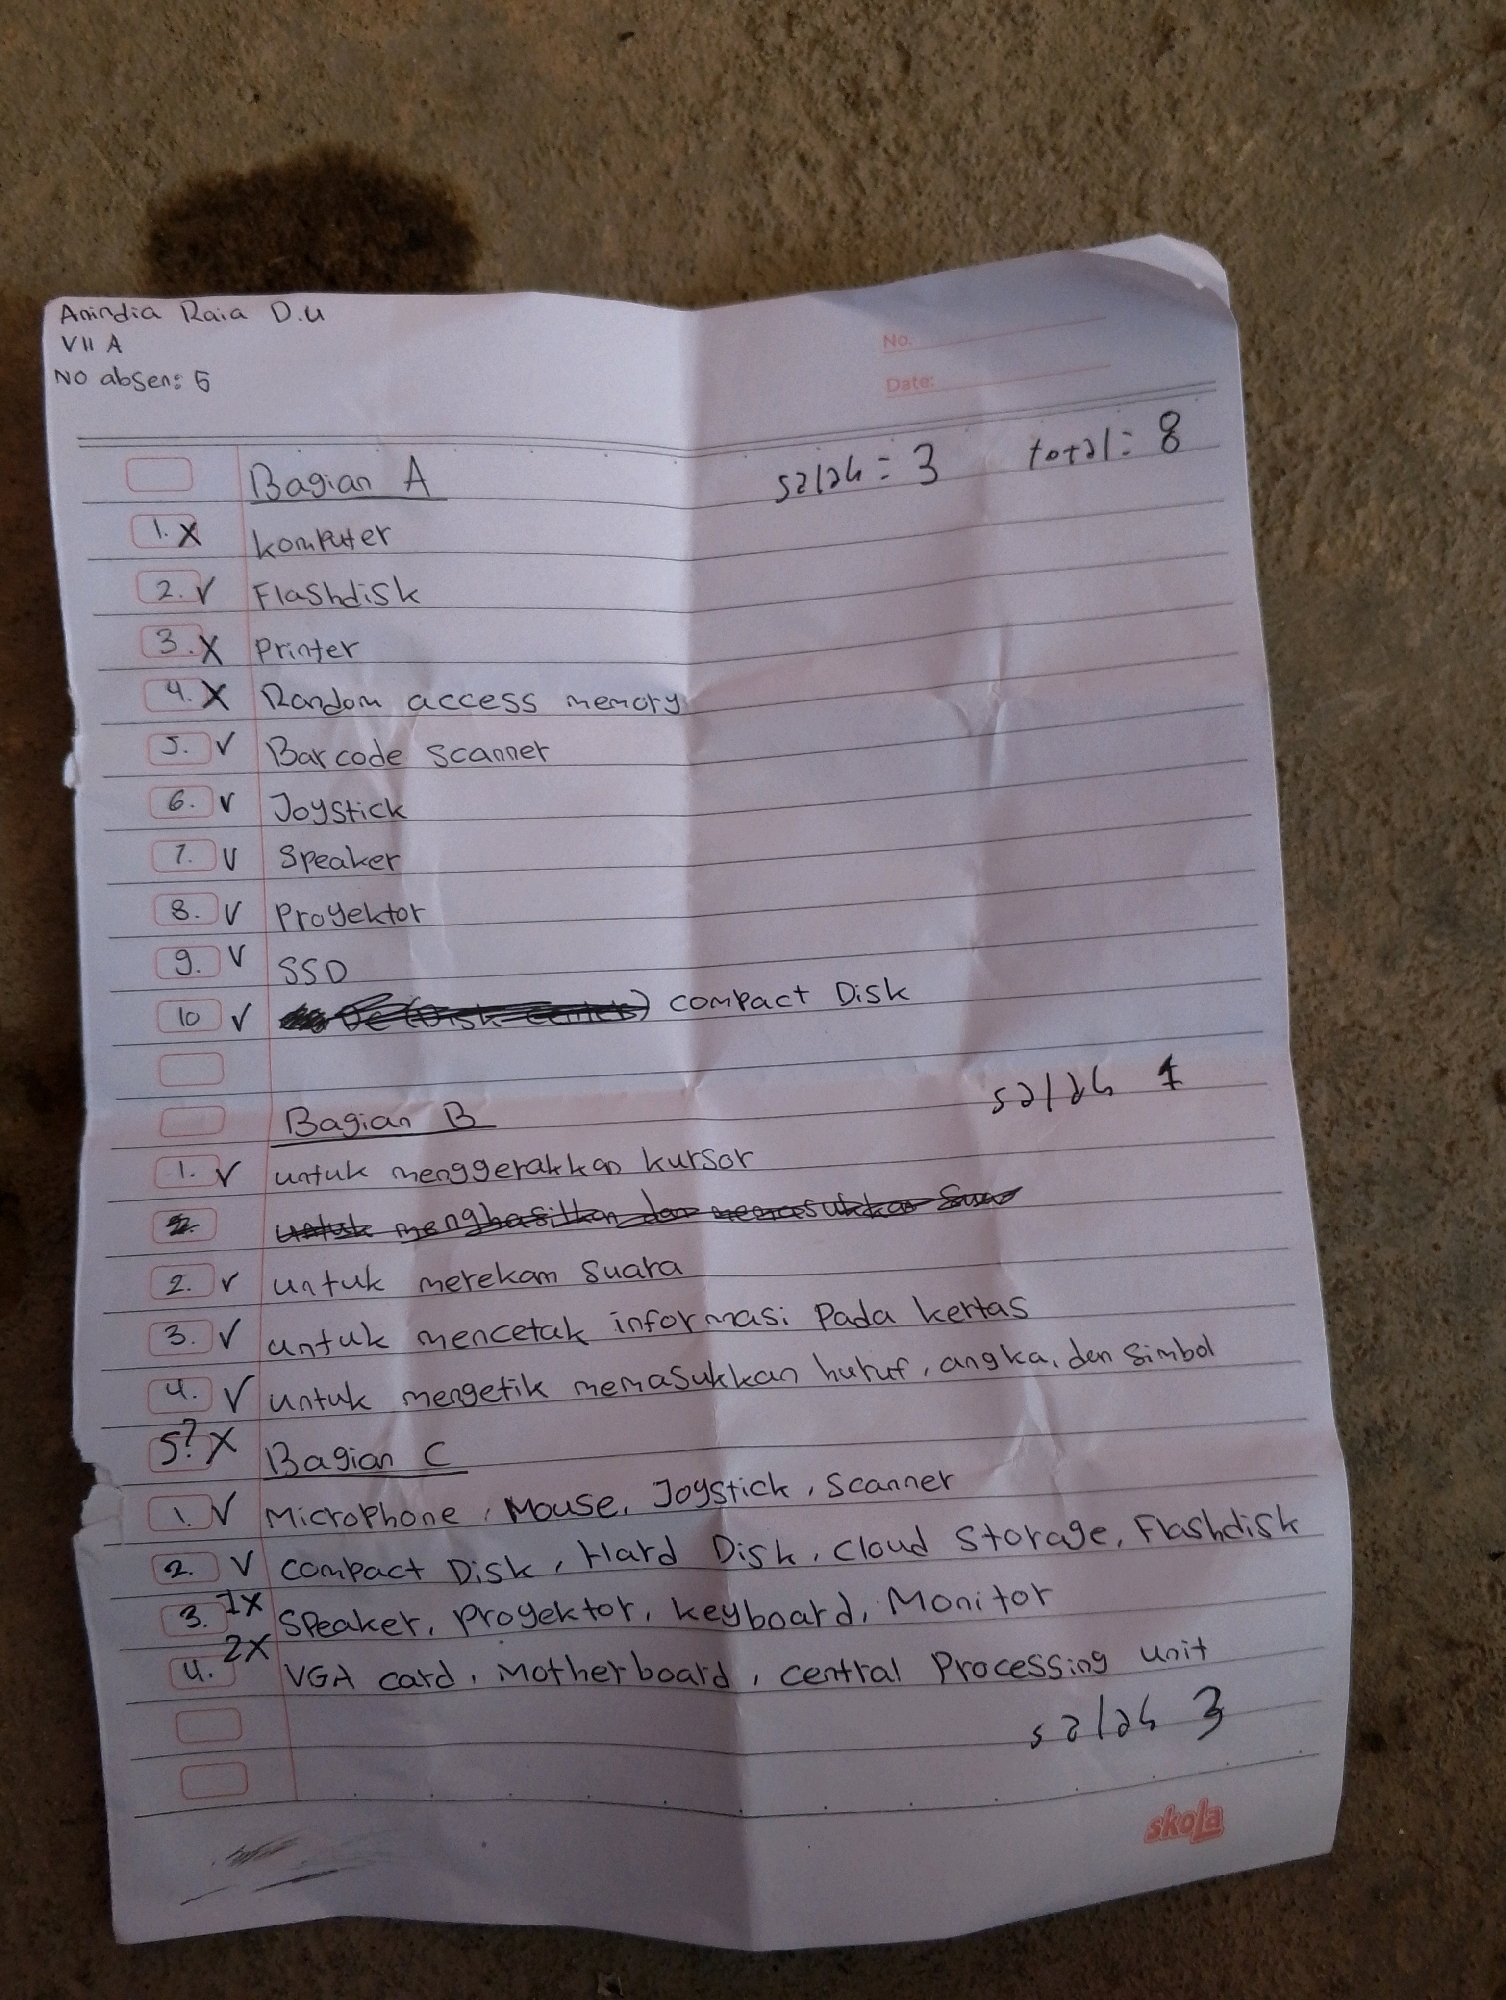 Anindia Raia D.U
VII A
No absen: 5
No.
Date:
Bagian A salah = 3 total = 8
1. X komputer
2. V Flashdisk
3. X Printer
4. X Random access memory
5. V Barcode Scanner
6. V Joystick
7. V Speaker
8. V Proyektor
9. V SSD
10 V compact Disk
Bagian B salah 1
1. V untuk menggerakkan kursor
2. untuk menghasilkan dan memasukkan
2. V untuk merekam suara
3. V untuk mencetak informasi Pada kertas
4. V untuk mengetik memasukkan huruf, angka, dan Simbol
5? X Bagian C
1. V Microphone, Mouse, Joystick, Scanner
2. V Compact Disk, Hard Disk, Cloud Storage, Flashdisk
3. 1X Speaker, Proyektor, keyboard, Monitor
4. 2X VGA card, Motherboard, central Processing unit
salah 3
skola